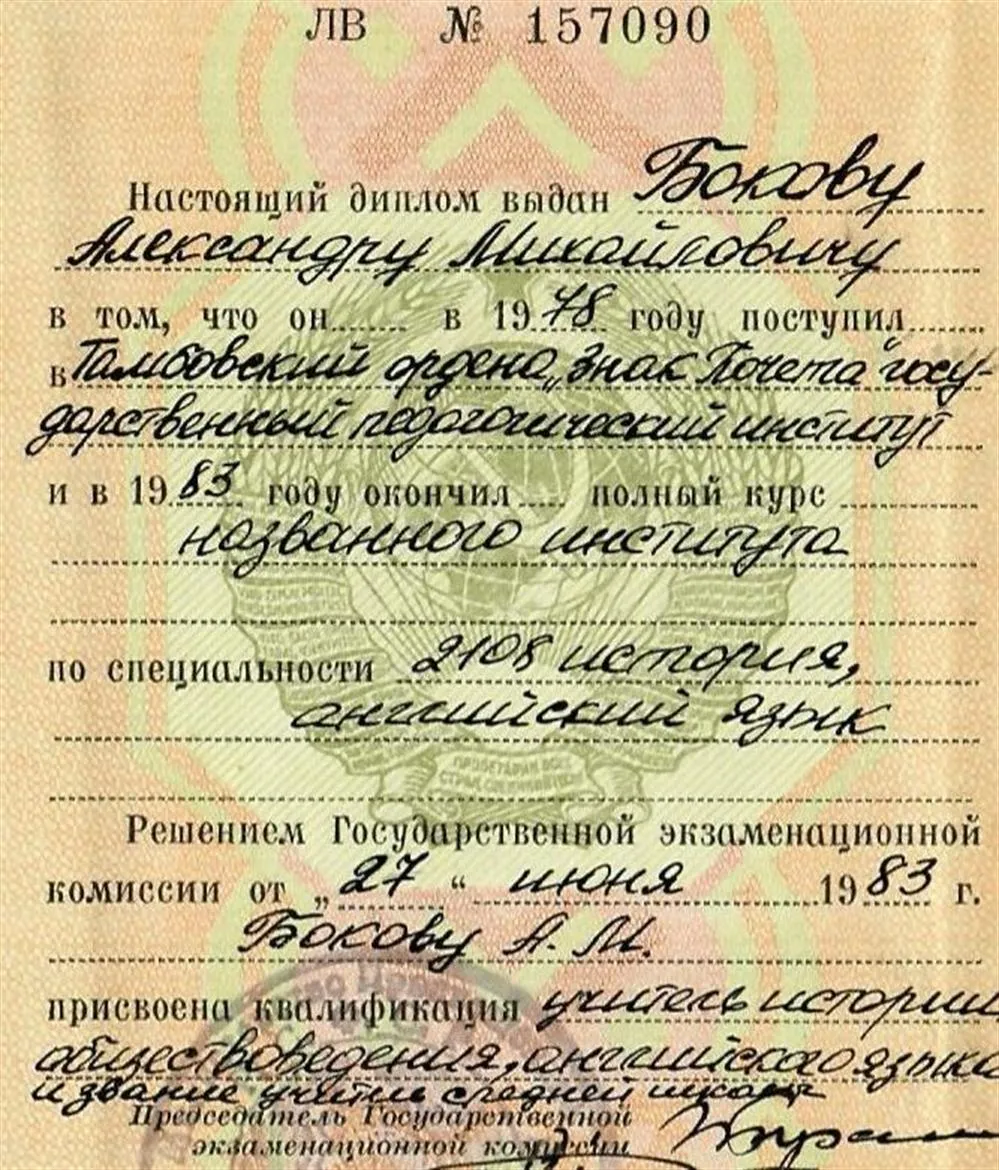 ЛВ № 157090
Настоящий диплом выдан Бокову
Александру Михайловичу
в том, что он в 1978 году поступил
в Тамбовский ордена „Знак Почета“ госу-
дарственный педагогический институт
и в 1983 году окончил полный курс
названного института
по специальности 2108 история,
английский язык
Решением Государственной экзаменационной
комиссии от „27“ июня 1983 г.
Бокову А. М.
присвоена квалификация учитель истории
обществоведения, английского языка
и звание учитель средней школы
Председатель Государственной
экзаменационной комиссии